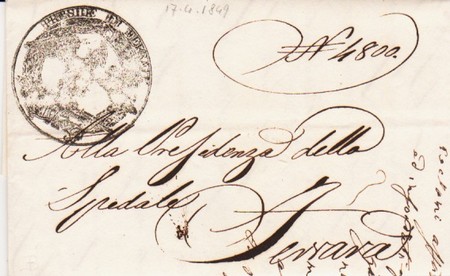 17.4.1849
PRESIDE DI
N 4800.
Alla Presidenza dello
Spedale
Ferrara